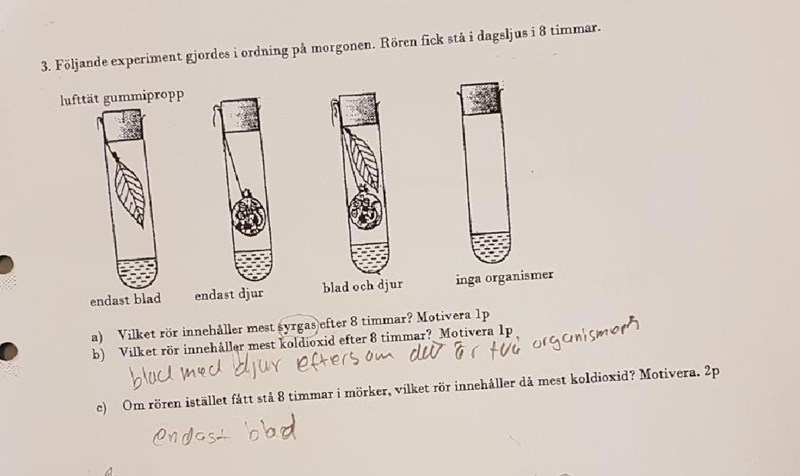 3. Följande experiment gjordes i ordning på morgonen. Rören fick stå i dagsljus i 8 timmar.
lufttät gummipropp
endast blad
endast djur
blad och djur
inga organismer
a) Vilket rör innehåller mest syrgas efter 8 timmar? Motivera 1p
b) Vilket rör innehåller mest koldioxid efter 8 timmar? Motivera 1p
blad med djur eftersom det är två organismer
c) Om rören istället fått stå 8 timmar i mörker, vilket rör innehåller då mest koldioxid? Motivera. 2p
endast blad